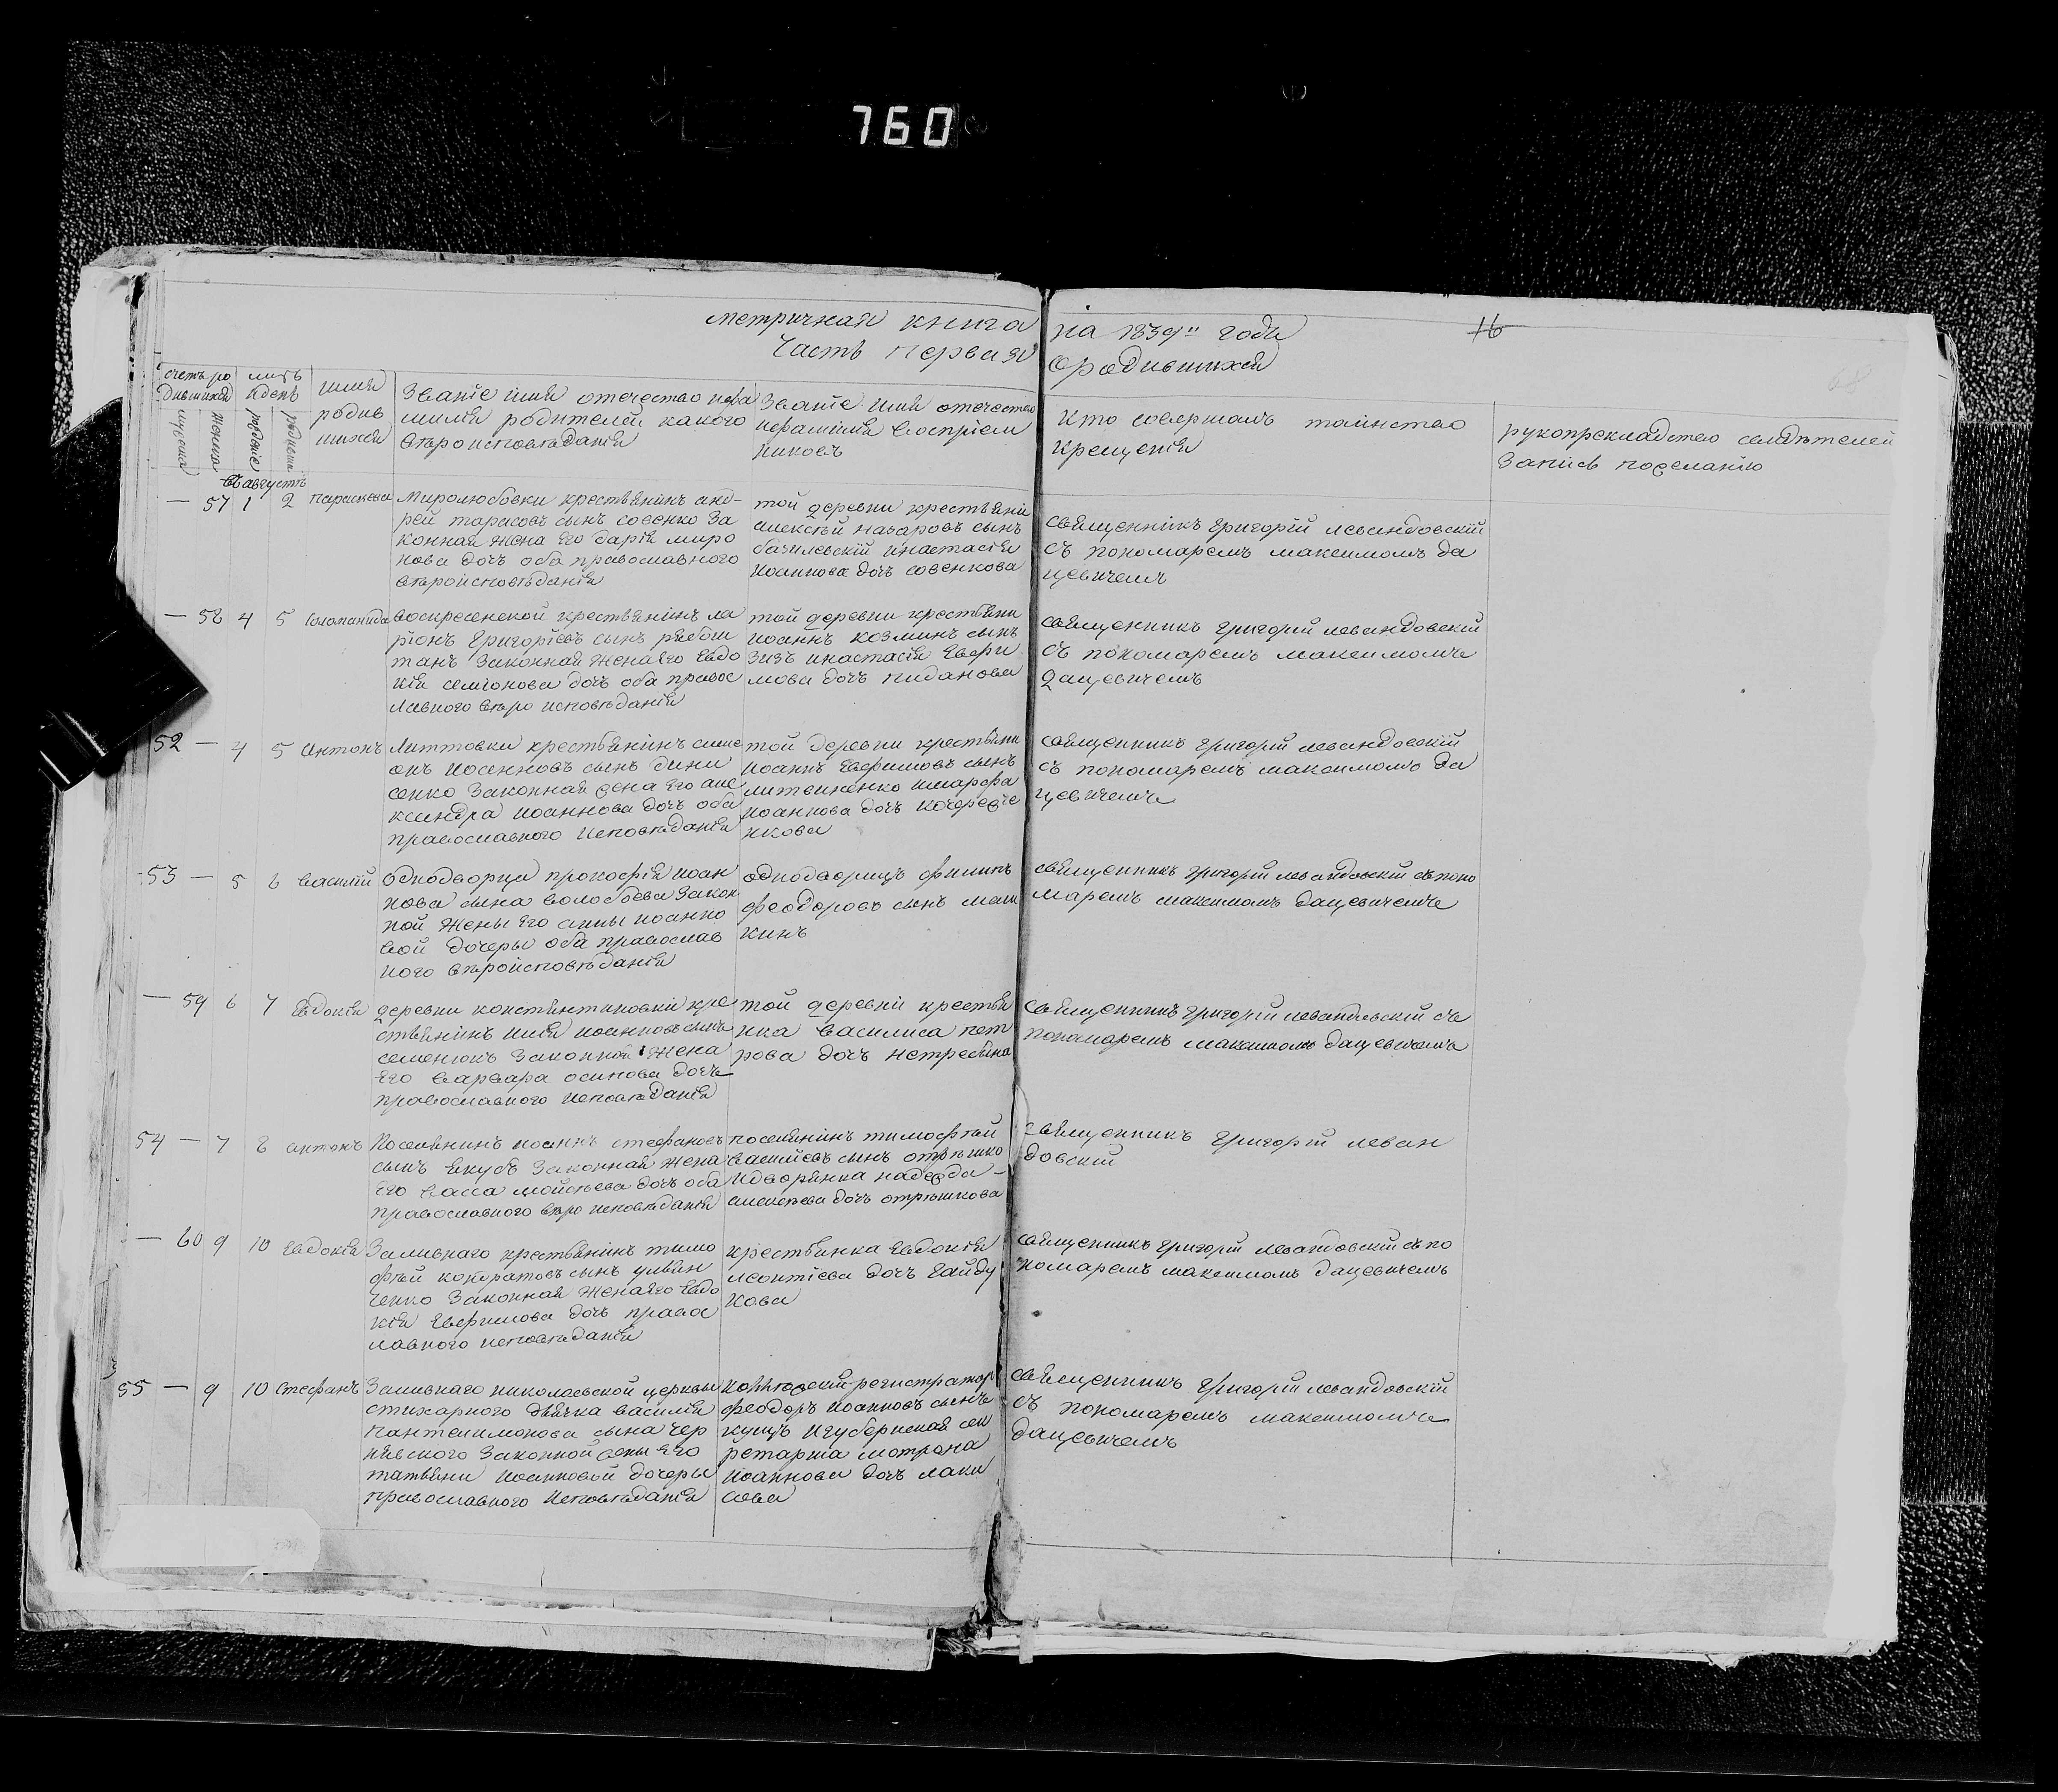 760
метричная книга на 1839" года
Часть первая о родившихся
16
68
счетъ ро
дившихся
мужеска
женска
рождение
имя
родив
шихся
Званіе имя отечество и фа
милія родителей какого
вѣроисповѣданія
Званіе имя отечество
и фамилія воспріем
никовъ
Кто совершалъ таинство
крещенія
рукоприкладство свидѣтелей
записѣ по желанію
Въ августѣ
— 57 1 2 параскева
Миролюбовки крестьянинъ анд-
рей тарасовъ сынъ совенко за
конная жена его дарія миро
нова дочъ оба православного
вѣроисповѣданія
той деревни крестьяни
алексѣй назаровъ сынъ
базилевскій и настасія
иоаннова дочъ совенкова
священникъ григорій левандовскій
съ пономаремъ максимомъ да
цевичемъ
— 58 4 5 соломанида
воскресенской крестьянинъ ла
ріонъ григоріевъ сынъ рябош
танъ законная жена его Евдо
кія семіонова дочъ оба правос
лавного вѣро исповѣданія
той деревни крестьяни
иоаннъ козминъ сынъ
зизъ и настасія Евфи
мова дочъ пиданова
священникъ григорій левандовскій
съ пономаремъ максимомъ
дацевичемъ
52 — 4 5 антонъ
Литтовки крестьянинъ симе
онъ иосенновъ сынъ дени
сенко законная жена его але
ксандра иоаннова дочъ оба
православного исповѣданія
той деревни крестьяни
иоаннъ Евфимовъ сынъ
литвиненко и марфа
иоаннова дочъ кочереже
нкова
священникъ григорій левандовскій
съ пономаремъ максимомъ да
цевичемъ
53 — 5 6 василій
Однодворца прокофія иоан
нова сына волобоева закон
ной жены его анны иоанно
вой дочеры оба православ
ного вѣроисповѣданія
однодворецъ филипъ
феодоровъ сынъ маш
кинъ
священникъ григорій левандовскій съ поно
маремъ максимомъ дацевичемъ
— 59 6 7 Евдокія
деревни константиновки кре
стьянинъ илія иоанновъ сынъ
семенюкъ законной жена
его варвара осипова дочъ
православного исповѣданія
той деревни крестья
нка василиса пет
рова дочъ нетребина
священникъ григорій левандовскій съ
пономаремъ максимомъ дацевичемъ
54 — 7 8 антонъ
Поселянинъ иоаннъ стефановъ
сынъ якубъ законная жена
его васса мойсѣева дочъ оба
православного вѣро исповѣданія
поселянинъ тимофѣй
василіевъ сынъ отрѣшко
и дворянка надежда-
алексѣева дочъ отрѣшкова
священникъ григорій леван
довскій
— 60 9 10 Евдокія
Заливного крестьянинъ тимо
фѣй кондратовъ сынъ ульян
ченко законная жена его Евдо
кія Евфимова дочъ правос
лавного исповѣданія
крестьянка Евдокія
леонтіева дочъ гайду
кова
священникъ григорій левандовскій съ по
номаремъ максимомъ дацевичемъ
55 — 9 10 стефанъ
Заливного николаевской церквы
стихарного дьячка василія
пантелимонова сына чер
нявского законной жены его
татьяни иоанновой дочеры
православного исповѣданія
коллежскій регистраторъ
феодоръ иоанновъ сынъ
куцъ и губернская сек
ретарша мотрона
иоаннова дочъ лаки
сова
священникъ григорій левандовскій
съ пономаремъ максимомъ
дацевичемъ